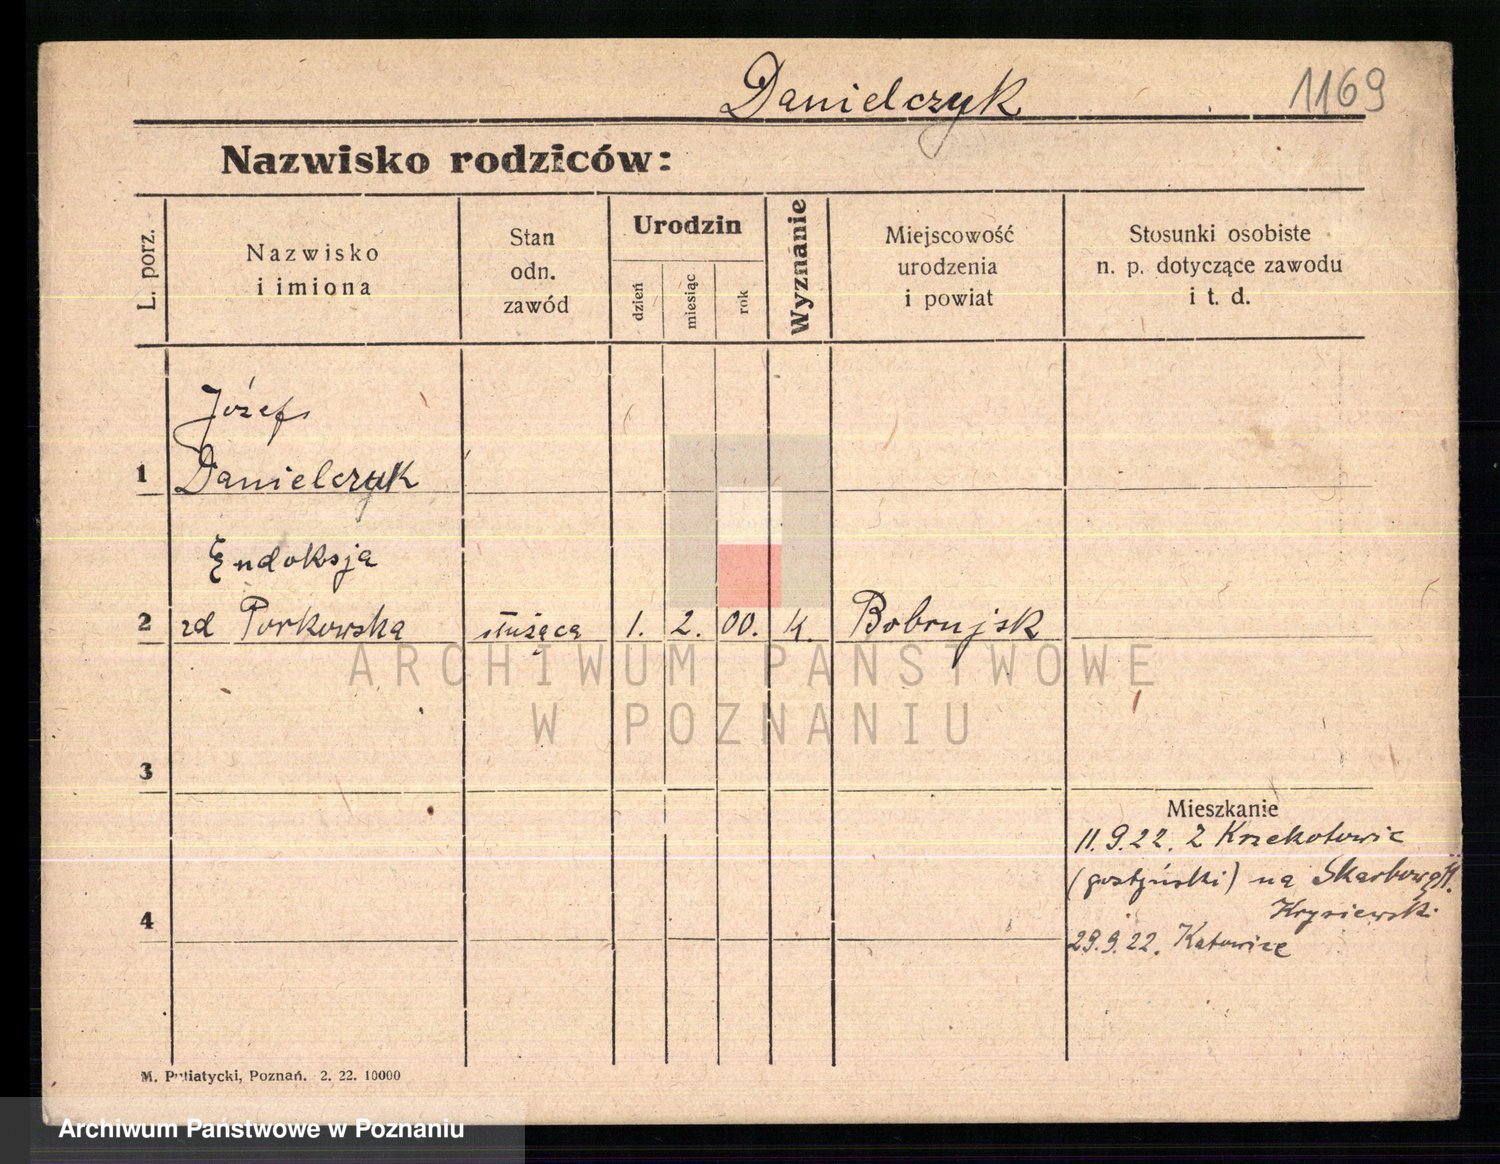 Danielczyk
1169
Nazwisko rodziców:
L. porz.
Nazwisko
i imiona
Stan
odn.
zawód
Urodzin
dzień
miesiąc
rok
Wyznanie
Miejscowość
urodzenia
i powiat
Stosunki osobiste
n. p. dotyczące zawodu
i t. d.
Józef
1 Danielczyk
Eudoksja
2 zd Porkowska służąca 1. 2. 00. k. Bobrujsk
3
Mieszkanie
11.9.22. Z Krzekotowic
(gostyński) na
4
29.9.22. Katowice
M. Putiatycki, Poznań. 2. 22. 10000
ARCHIWUM PAŃSTWOWE
W POZNANIU
Archiwum Państwowe w Poznaniu